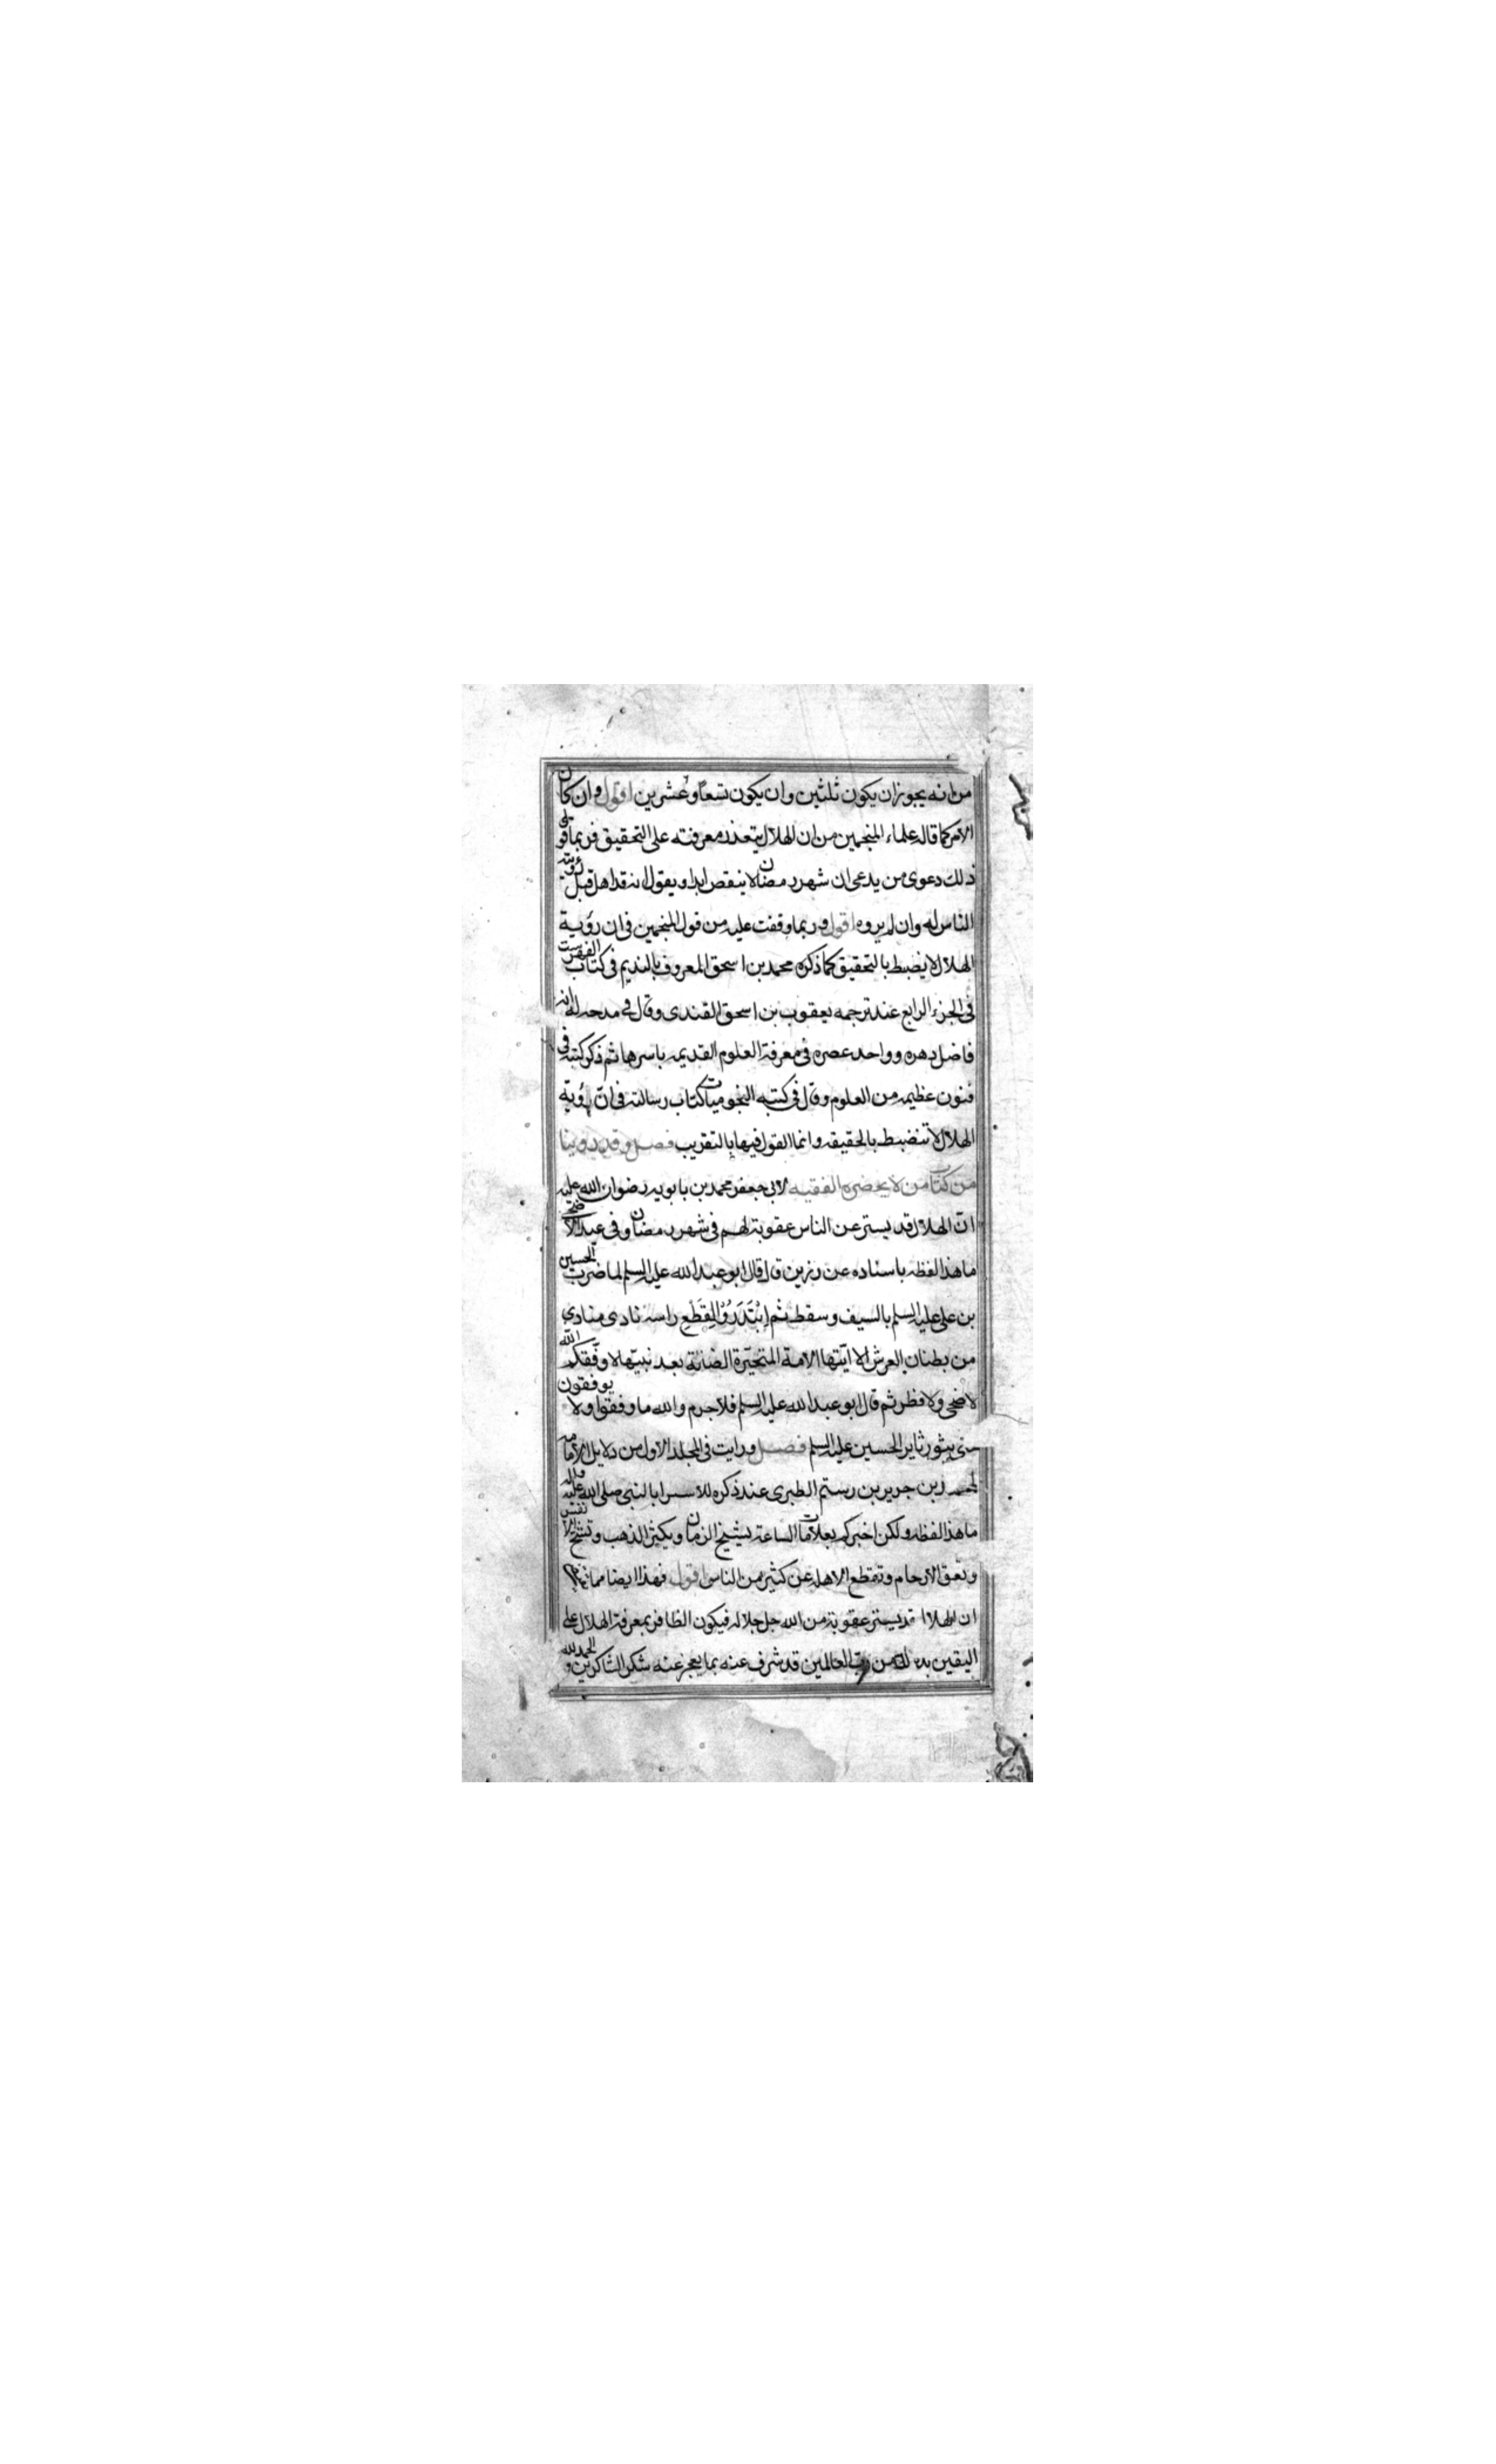 من انه يجوز ان يكون ثلثين وان يكون تسعا وعشرين اقول وان كان
الامر كما قاله علماء المنجمين من ان الهلال يتعذر معرفته على التحقيق فربما قوى
ذلك دعوى من يدعى ان شهر رمضان لا ينقص ابدا ويقول انه قد اهل قبل رؤية
الناس له وان لم يروه اقول وربما وقفت عليه من قول المنجمين فى ان رؤية
الهلال لا يضبط بالتحقيق كما ذكره محمد بن اسحق المعروف بالنديم فى كتاب الفهرست
فى الجزء الرابع عند ترجمه يعقوب بن اسحق القندى وقال فى مدحه له انه
فاضل دهره وواحد عصره فى معرفة العلوم القديمه باسرها ثم ذكر كتبه فى
فنون عظيمه من العلوم وقال فى كتبه النجوميات كتاب رسالته فى انّ رؤية
الهلال لا تنضبط بالحقيقه وانما القول فيها بالتقريب فصل وقد روينا
من كتاب من لا يحضره الفقيه لابى جعفر محمد بن بابويه رضوان الله عليه
انّ الهلال قد يستر عن الناس عقوبة لهم فى شهر رمضان وفى عيد الاضحى
ما هذا لفظه باسناده عن رزين قال قال ابو عبد الله عليه السلم لما ضرب الحسين
بن على عليه السلم بالسيف وسقط ثم اِبْتَدَرُوْا لِقَطْعِ راسه نادى منادى
من بطنان العرش الا ايّتها الامة المتحيّرة الضالة بعد نبيّها لا وفّقكم الله
لاضحى ولا فطر ثم قال ابو عبد الله عليه السلم فلا جرم والله ما وفقوا ولا يوفقون
حتى يثور ثاير الحسين عليه السلم فصل ورايت فى المجلد الاول من دلايل الامامه
لمحمد بن جرير بن رستم الطبرى عند ذكره للاسرا بالنبى صلى الله عليه واله
ما هذا لفظه ولكن اخبركم بعلامات الساعة يشيخ الزمان ويكثر الذهب وتشح الانفس
وتعق الارحام وتقطع الاهله عن كثير من الناس اقول فهذا ايضا مما
ان الهلال قد يستر عقوبة من الله جل جلاله فيكون الظافر بمعرفة الهلال على
اليقين بدلالة من رب العالمين قد شرف عنه بما يعجز عنه شكر الشاكرين والحمد لله